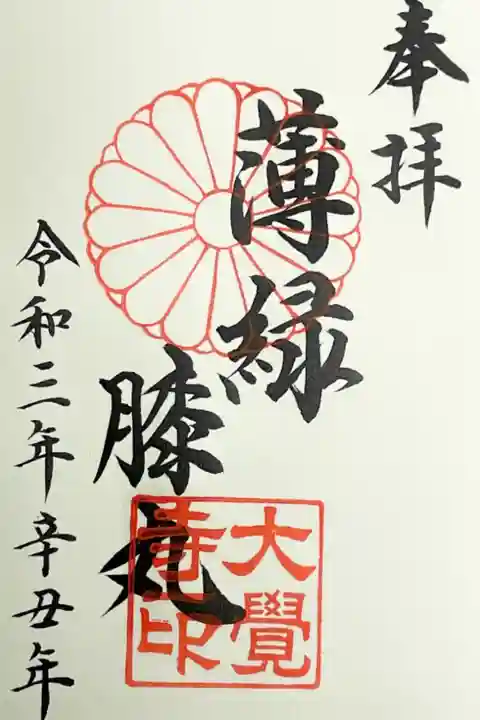 奉拝
薄緑
膝丸
大覺
寺印
令和三年辛丑年